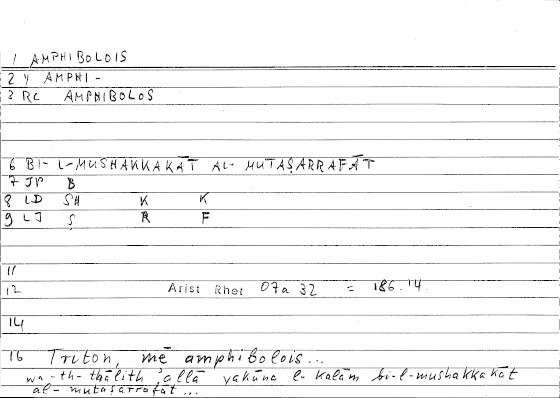 1 AMPHIBOLOIS
2 Y AMPHI -
3 RC AMPHIBOLOS
6 BI- L-MUSHAKKAKĀT AL- MUTAṢARRAFĀT
7 JP B
8 LD SH K K
9 LJ Ṣ R F
11
12 Arist Rhet 07a 32 = 186.14.
14
16 Triton, mē amphibolois...
wa-th-thālith ʾallā yakūna l-kalām bi-l-mushakkakāt
al-mutaṣarrafāt...